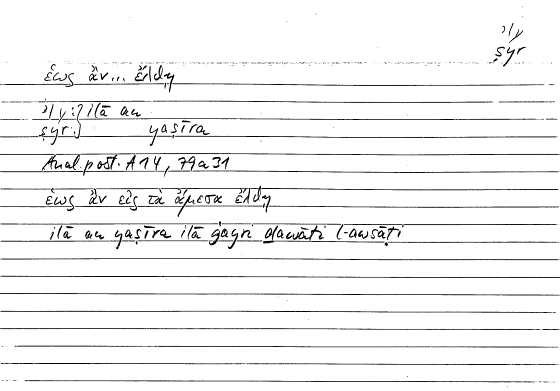 ʾly
ṣyr
ἕως ἄν... ἔλθῃ
ʾly:} ilā an
ṣyr:} yaṣīra
Anal. post. A 14, 79a31
ἕως ἂν εἰς τὰ ἄμεσα ἔλθῃ
ilā an yaṣīra ilā ġayri ḏawāti l-awsāṭi